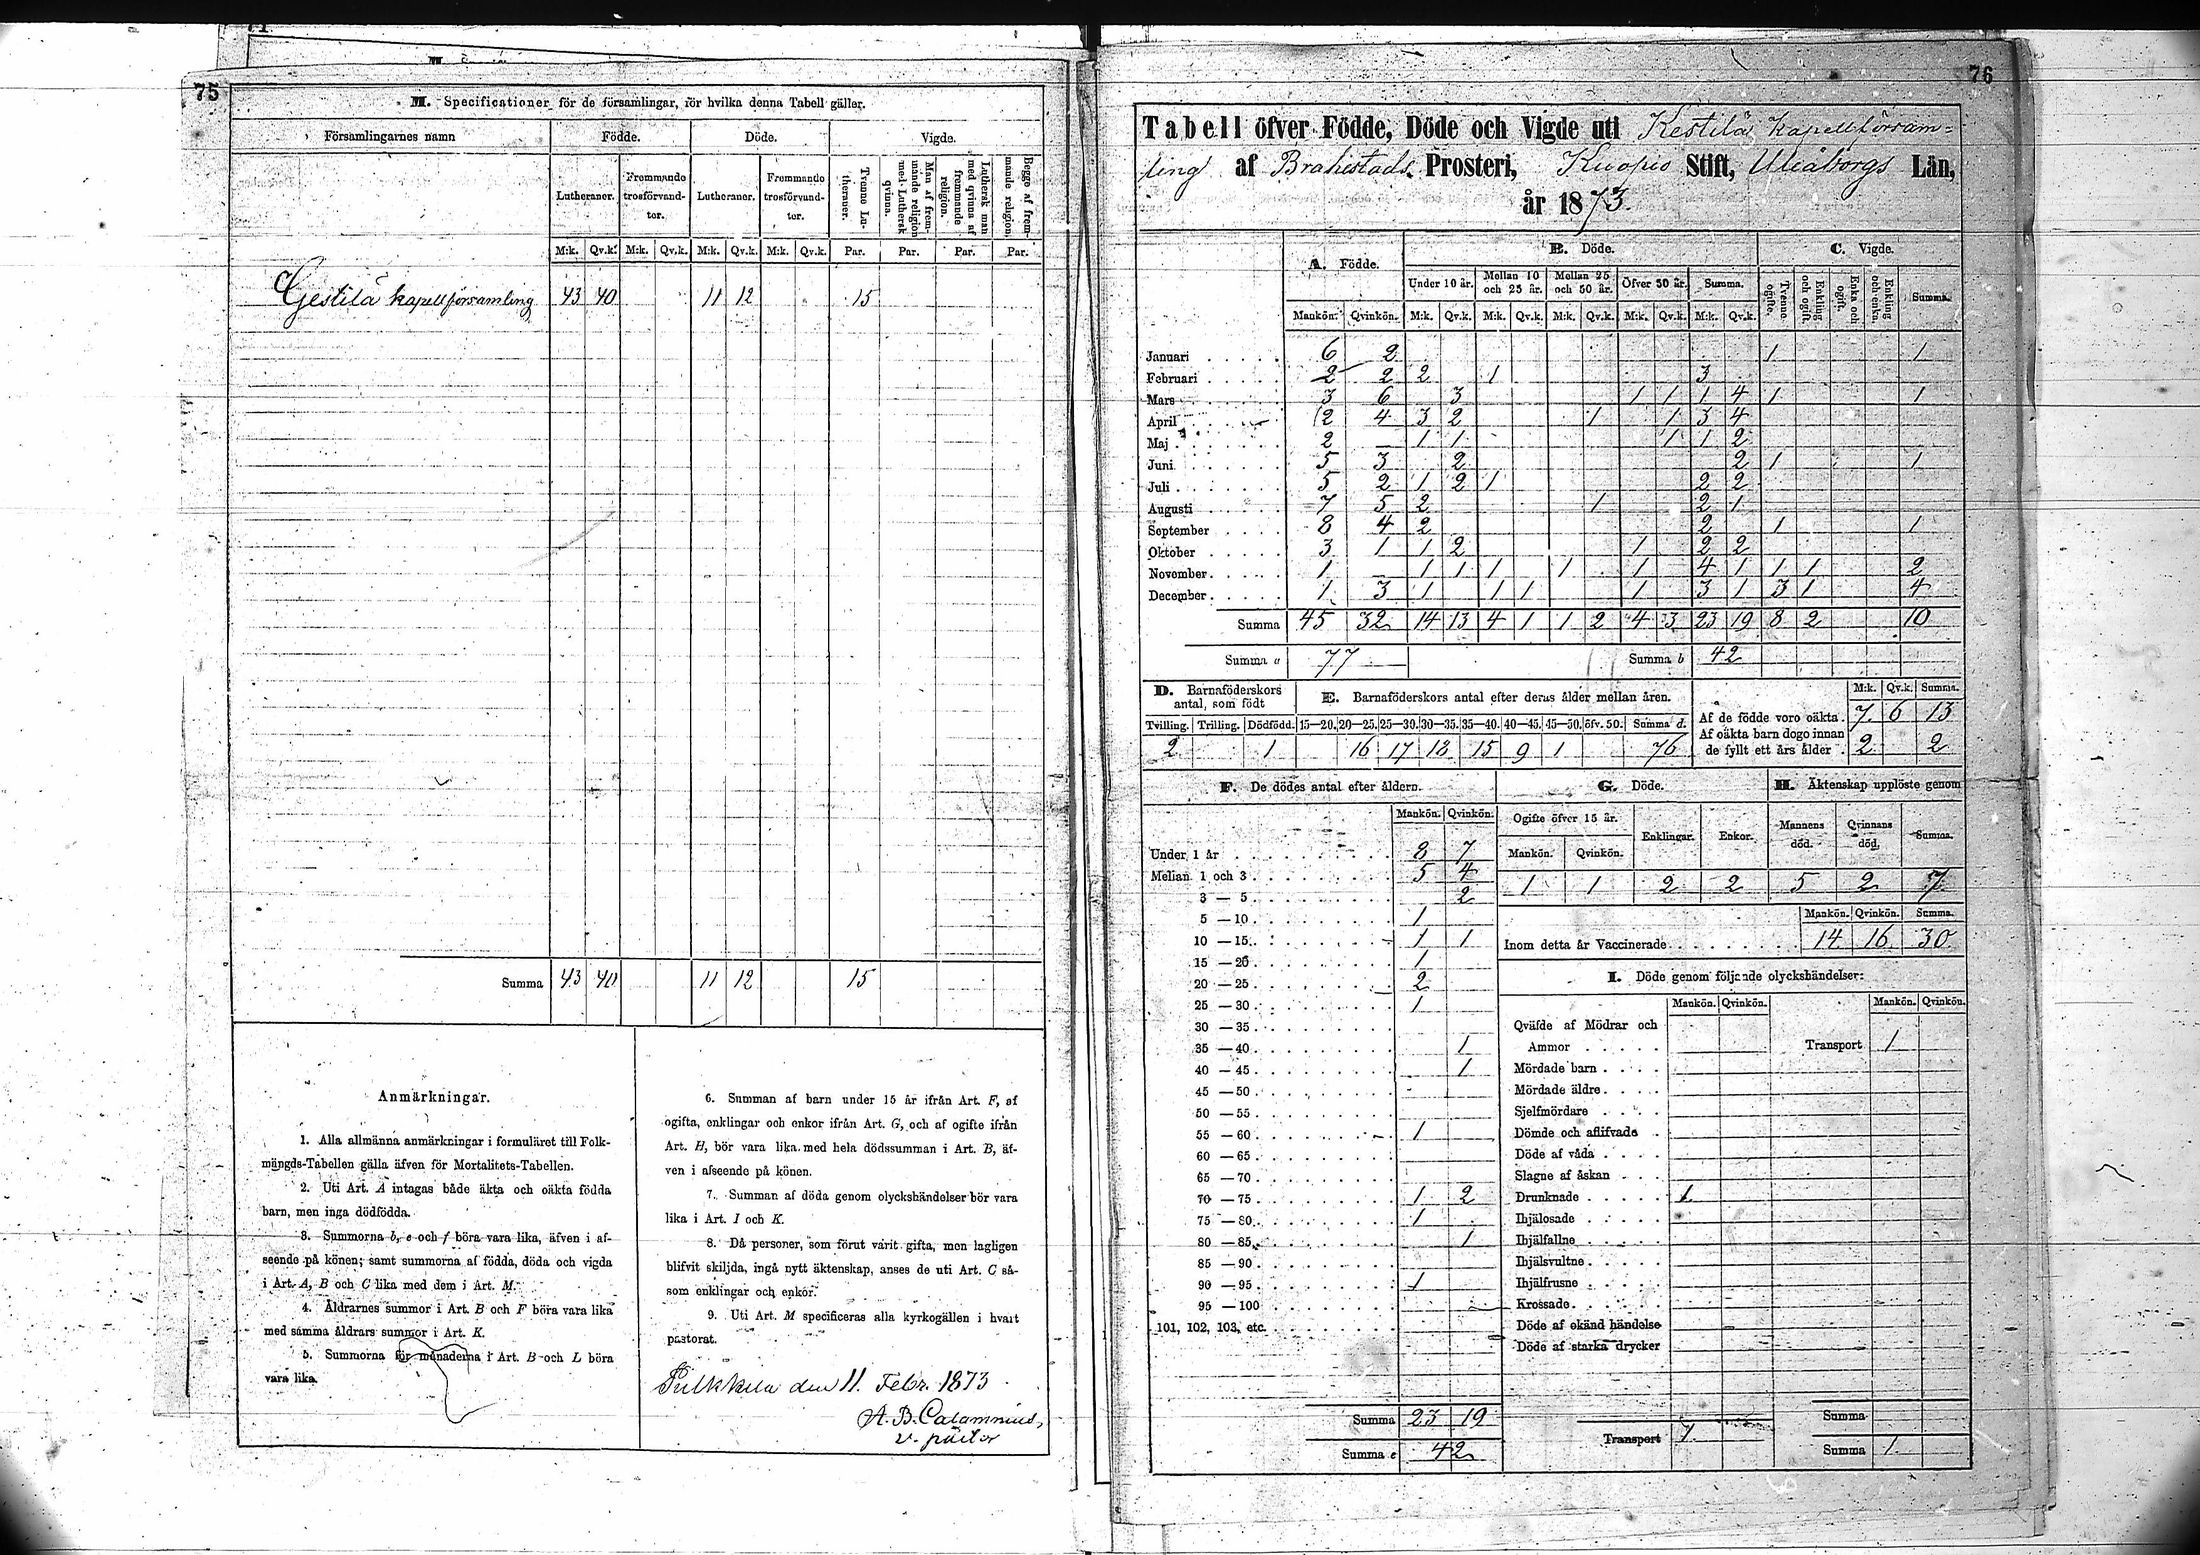 75
M. Specificationer för de församlingar, för hvilka denna Tabell gäller.
Församlingarnes namn Födde. Döde. Vigde.
Lutheraner. Fremmande trosförvandter. Lutheraner. Fremmande trosförvandter. Tvenne Lutheraner. Man af fremmande religion med Luthersk qvinna. Luthersk man med qvinna af fremmande religion. Begge af fremmande religion.
M:k. Qv.k. M:k. Qv.k. M:k. Qv.k. M:k. Qv.k. Par. Par. Par. Par.
Gestilä kapellförsamling 43 40 11 12 15
Summa 43 40 11 12 15
Anmärkningar.
1. Alla allmänna anmärkningar i formuläret till Folk-
mängds-Tabellen gälla äfven för Mortalitets-Tabellen.
2. Uti Art. A intagas både äkta och oäkta födda
barn, men inga dödfödda.
3. Summorna b, e och f böra vara lika, äfven i af-
seende på könen; samt summorna af födda, döda och vigda
i Art. A, B och C lika med dem i Art. M.
4. Åldrarnes summor i Art. B och F böra vara lika
med samma åldrars summor i Art. K.
5. Summorna för månaderna i Art. B och L böra
vara lika.
6. Summan af barn under 15 år ifrån Art. F, af
ogifta, enklingar och enkor ifrån Art. G, och af ogifte ifrån
Art. H, bör vara lika med hela dödssumman i Art. B, äf-
ven i afseende på könen.
7. Summan af döda genom olyckshändelser bör vara
lika i Art. I och K.
8. Då personer, som förut varit gifta, men lagligen
blifvit skiljda, ingå nytt äktenskap, anses de uti Art. C så-
som enklingar och enkor.
9. Uti Art. M specificeras alla kyrkogällen i hvart
pastorat.
Pulkkila den 11. Febr. 1873
A. B. Calamnius,
v. pastor
76
Tabell öfver Födde, Döde och Vigde uti Kestilä Kapellförsam=
ling af Brahestads Prosteri, Kuopio Stift, Uleåborgs Län,
år 1873.
A. Födde. B. Döde. C. Vigde.
Under 10 år. Mellan 10 och 25 år. Mellan 25 och 50 år. Öfver 50 år. Summa. Tvenne ogifte. Enkling och ogift. Enka och ogift. Enkling och enka. Summa.
Mankön. Qvinkön. M:k. Qv.k. M:k. Qv.k. M:k. Qv.k. M:k. Qv.k. M:k. Qv.k.
Januari 6 2 1 1
Februari 2 2 2 1 3
Mars 3 6 3 1 1 1 4 1 1
April 2 4 3 2 1 1 3 4
Maj 2 — 1 1 1 1 2
Juni 5 3 2 2 1 1
Juli 5 2 1 2 1 2 2
Augusti 7 5 2 1 2 1
September 8 4 2 2 1 1
Oktober 3 1 1 2 1 2 2
November 1 — 1 1 1 1 1 4 1 1 1 2
December 1 3 1 1 1 1 3 1 3 1 4
Summa 45 32 14 13 4 1 1 2 4 3 23 19 8 2 10
Summa a 77 Summa b 42
D. Barnaföderskors antal, som födt
E. Barnaföderskors antal efter deras ålder mellan åren.
M:k. Qv.k. Summa.
Tvilling. Trilling. Dödfödd. 15—20. 20—25. 25—30. 30—35. 35—40. 40—45. 45—50. öfv. 50. Summa d.
2 1 16 17 18 15 9 1 76
Af de födde voro oäkta 7 6 13
Af oäkta barn dogo innan
de fyllt ett års ålder 2 2
F. De dödes antal efter åldern.
Mankön. Qvinkön.
Under 1 år 8 7
Mellan 1 och 3 5 4
3 — 5 2
5 — 10 1
10 — 15 1 1
15 — 20 1
20 — 25 2
25 — 30 1
30 — 35
35 — 40 1
40 — 45 1
45 — 50
50 — 55
55 — 60 1
60 — 65
65 — 70
70 — 75 1 2
75 — 80 1
80 — 85 1
85 — 90
90 — 95 1
95 — 100
101, 102, 103, etc.
Summa 23 19
Summa e 42
G. Döde.
Ogifte öfver 15 år. Enklingar. Enkor.
Mankön. Qvinkön.
1 1 2 2
H. Äktenskap upplöste genom
Mannens död. Qvinnans död. Summa.
5 2 7
Mankön. Qvinkön. Summa.
Inom detta år Vaccinerade 14 16 30
I. Döde genom följande olyckshändelser:
Mankön. Qvinkön. Mankön. Qvinkön.
Qväfde af Mödrar och
Ammor Transport 1
Mördade barn
Mördade äldre
Sjelfmördare
Dömde och aflifvade
Döde af våda
Slagne af åskan
Drunknade 1
Ihjälosade
Ihjälfallne
Ihjälsvultne
Ihjälfrusne
Krossade
Döde af okänd händelse
Döde af starka drycker
Summa
Transport 1 Summa 1